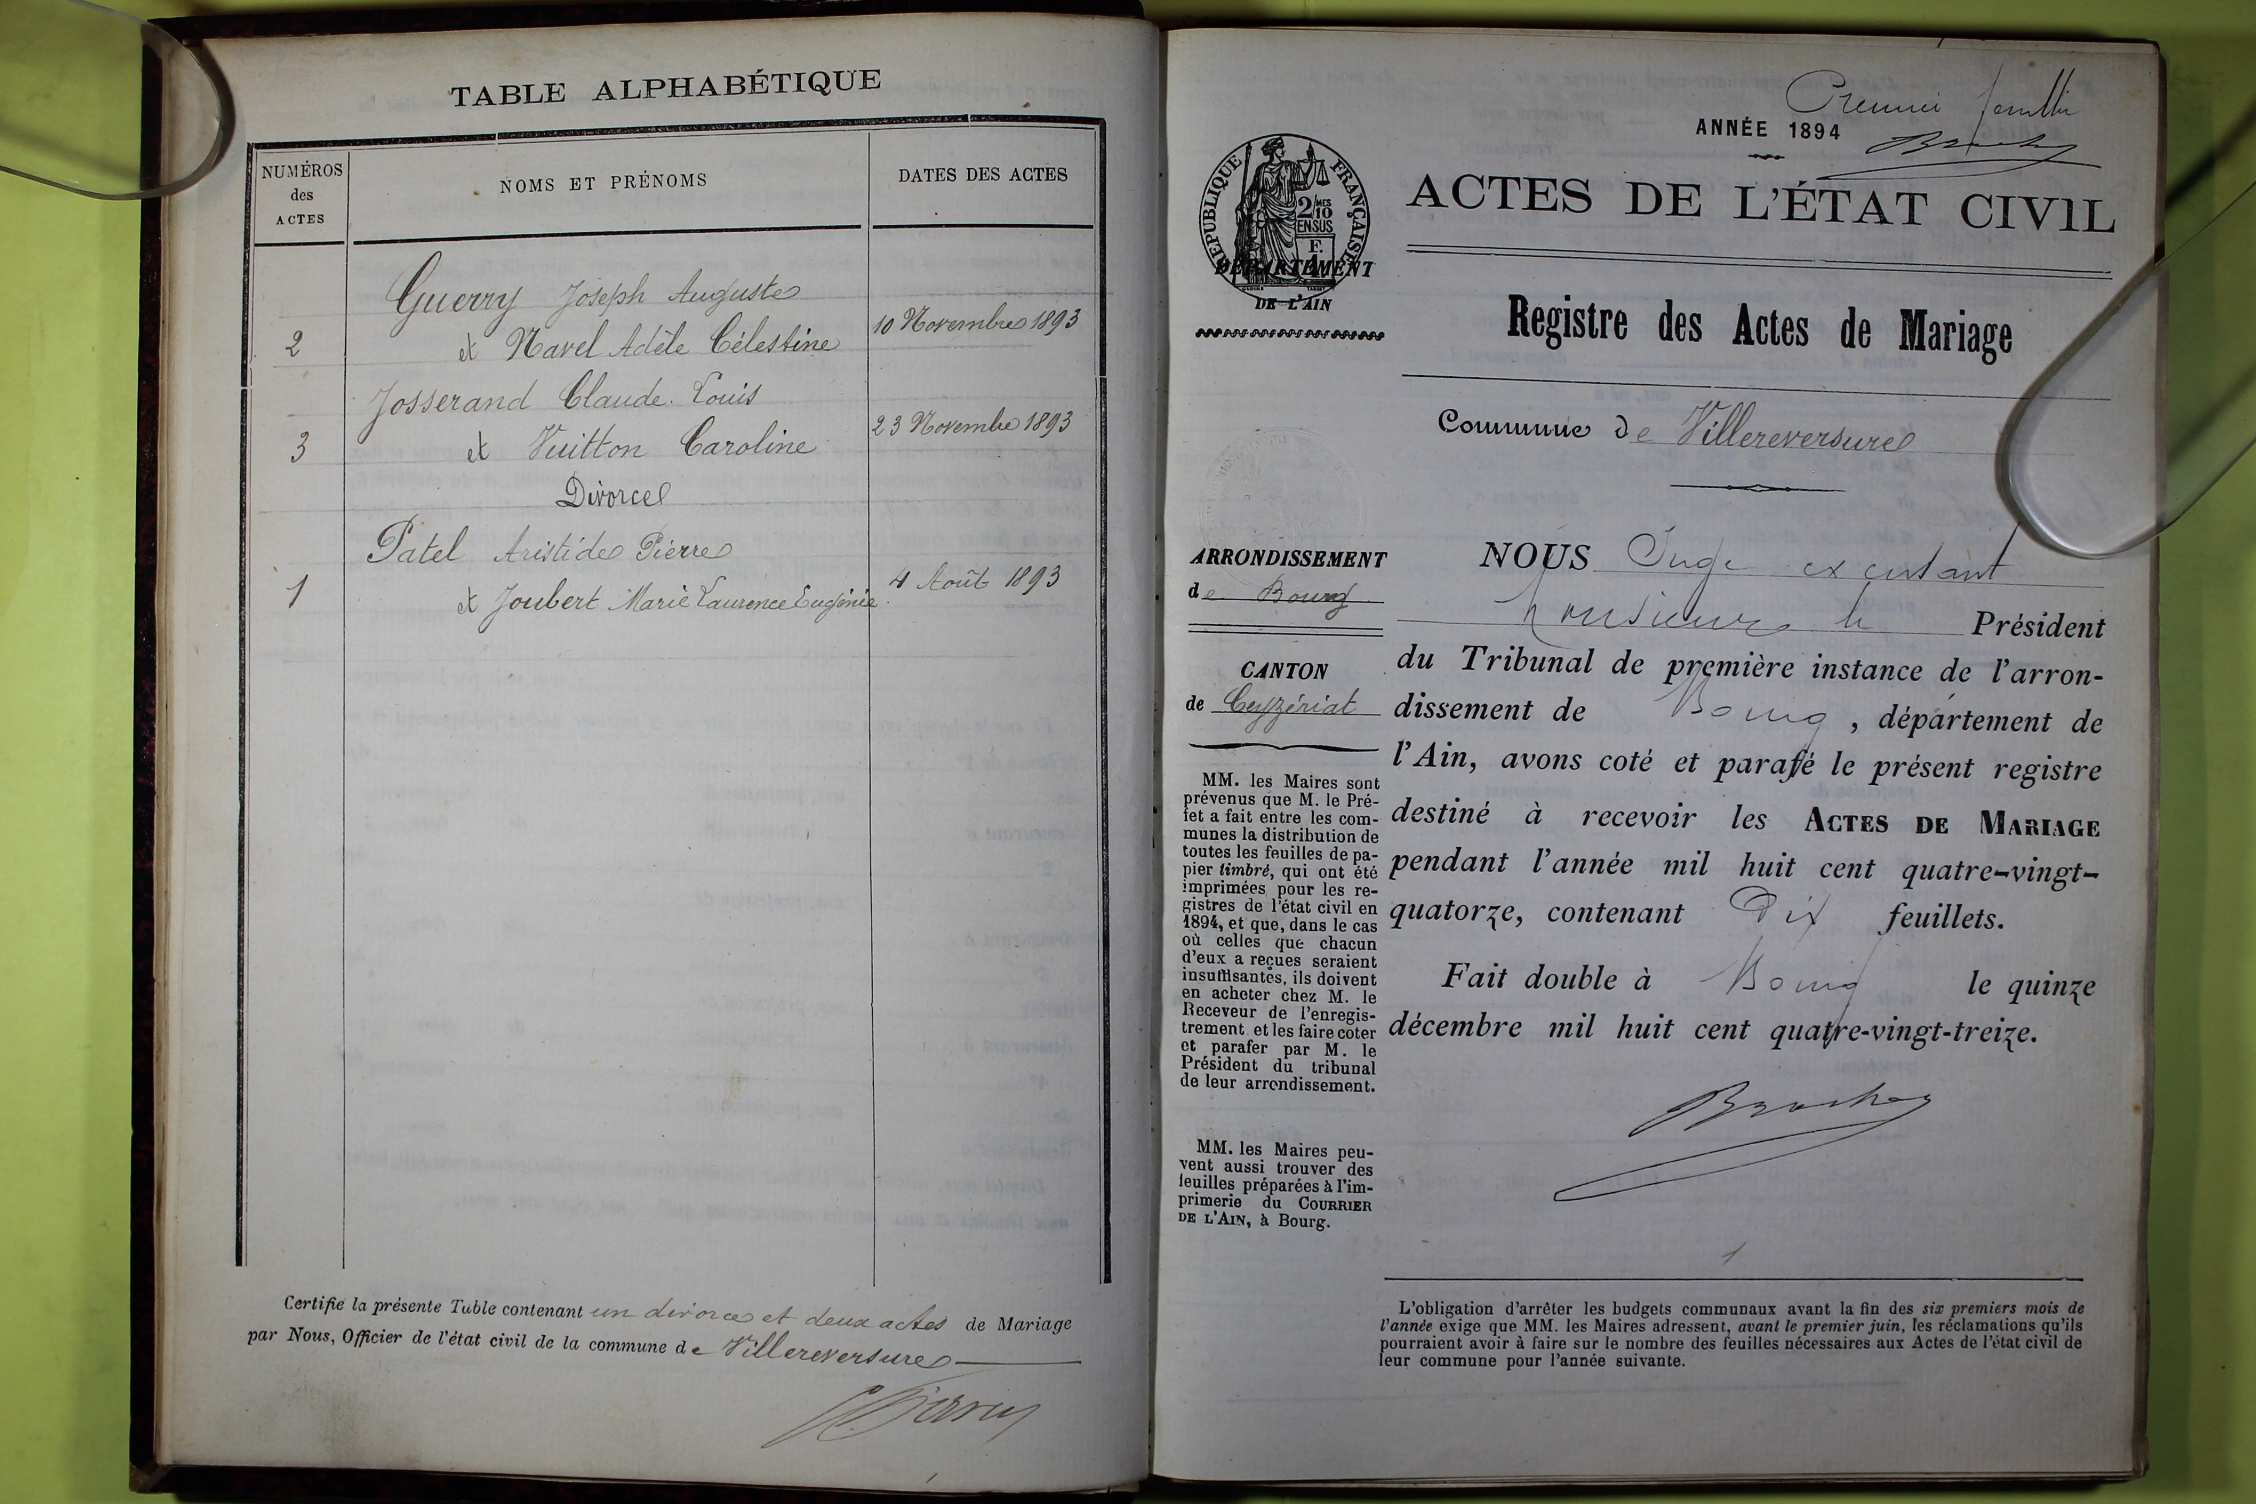 TABLE ALPHABÉTIQUE
NUMÉROS
des
ACTES
NOMS ET PRÉNOMS
DATES DES ACTES
Guerry Joseph Auguste
2 et Navel Adèle Célestine 10 Novembre 1893
Josserand Claude Louis
3 et Vuitton Caroline 23 Novembre 1893
Divorce
Patel Aristide Pierre
1 et Joubert Marie Laurence Eugénie 4 Août 1893
Certifie la présente Table contenant un divorce et deux actes de Mariage
par Nous, Officier de l'état civil de la commune de Villereversure
Premier feuillet
ANNÉE 1894
ACTES DE L'ÉTAT CIVIL
RÉPUBLIQUE FRANÇAISE
2/10 MES
EN SUS
F.
1
DÉPARTEMENT
DE L'AIN
Registre des Actes de Mariage
Commune de Villereversure
ARRONDISSEMENT
de Bourg
CANTON
de Ceyzériat
MM. les Maires sont
prévenus que M. le Pré-
fet a fait entre les com-
munes la distribution de
toutes les feuilles de pa-
pier timbré, qui ont été
imprimées pour les re-
gistres de l'état civil en
1894, et que, dans le cas
où celles que chacun
d'eux a reçues seraient
insuffisantes, ils doivent
en acheter chez M. le
Receveur de l'enregis-
trement et les faire coter
et parafer par M. le
Président du tribunal
de leur arrondissement.
MM. les Maires peu-
vent aussi trouver des
feuilles préparées à l'im-
primerie du COURRIER
DE L'AIN, à Bourg.
NOUS Juge
Monsieur le Président
du Tribunal de première instance de l'arron-
dissement de Bourg, département de
l'Ain, avons coté et parafé le présent registre
destiné à recevoir les ACTES DE MARIAGE
pendant l'année mil huit cent quatre-vingt-
quatorze, contenant Dix feuillets.
Fait double à Bourg le quinze
décembre mil huit cent quatre-vingt-treize.
1
L'obligation d'arrêter les budgets communaux avant la fin des six premiers mois de
l'année exige que MM. les Maires adressent, avant le premier juin, les réclamations qu'ils
pourraient avoir à faire sur le nombre des feuilles nécessaires aux Actes de l'état civil de
leur commune pour l'année suivante.